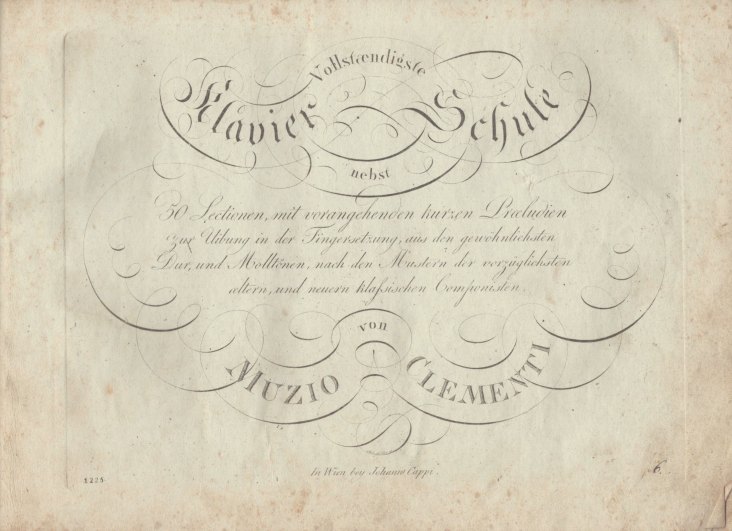 Vollstændigste
Klavier Schule
nebst
50 Lectionen, mit vorangehenden kurzen Præludien
zur Uibung in der Fingersetzung, aus den gewöhnlichsten
Dur, und Molltönen, nach den Mustern der vorzüglichsten
æltern, und neuern klaſsischen Componisten.
von
MUZIO CLEMENTI
In Wien bey Johann Cappi
1225
6.